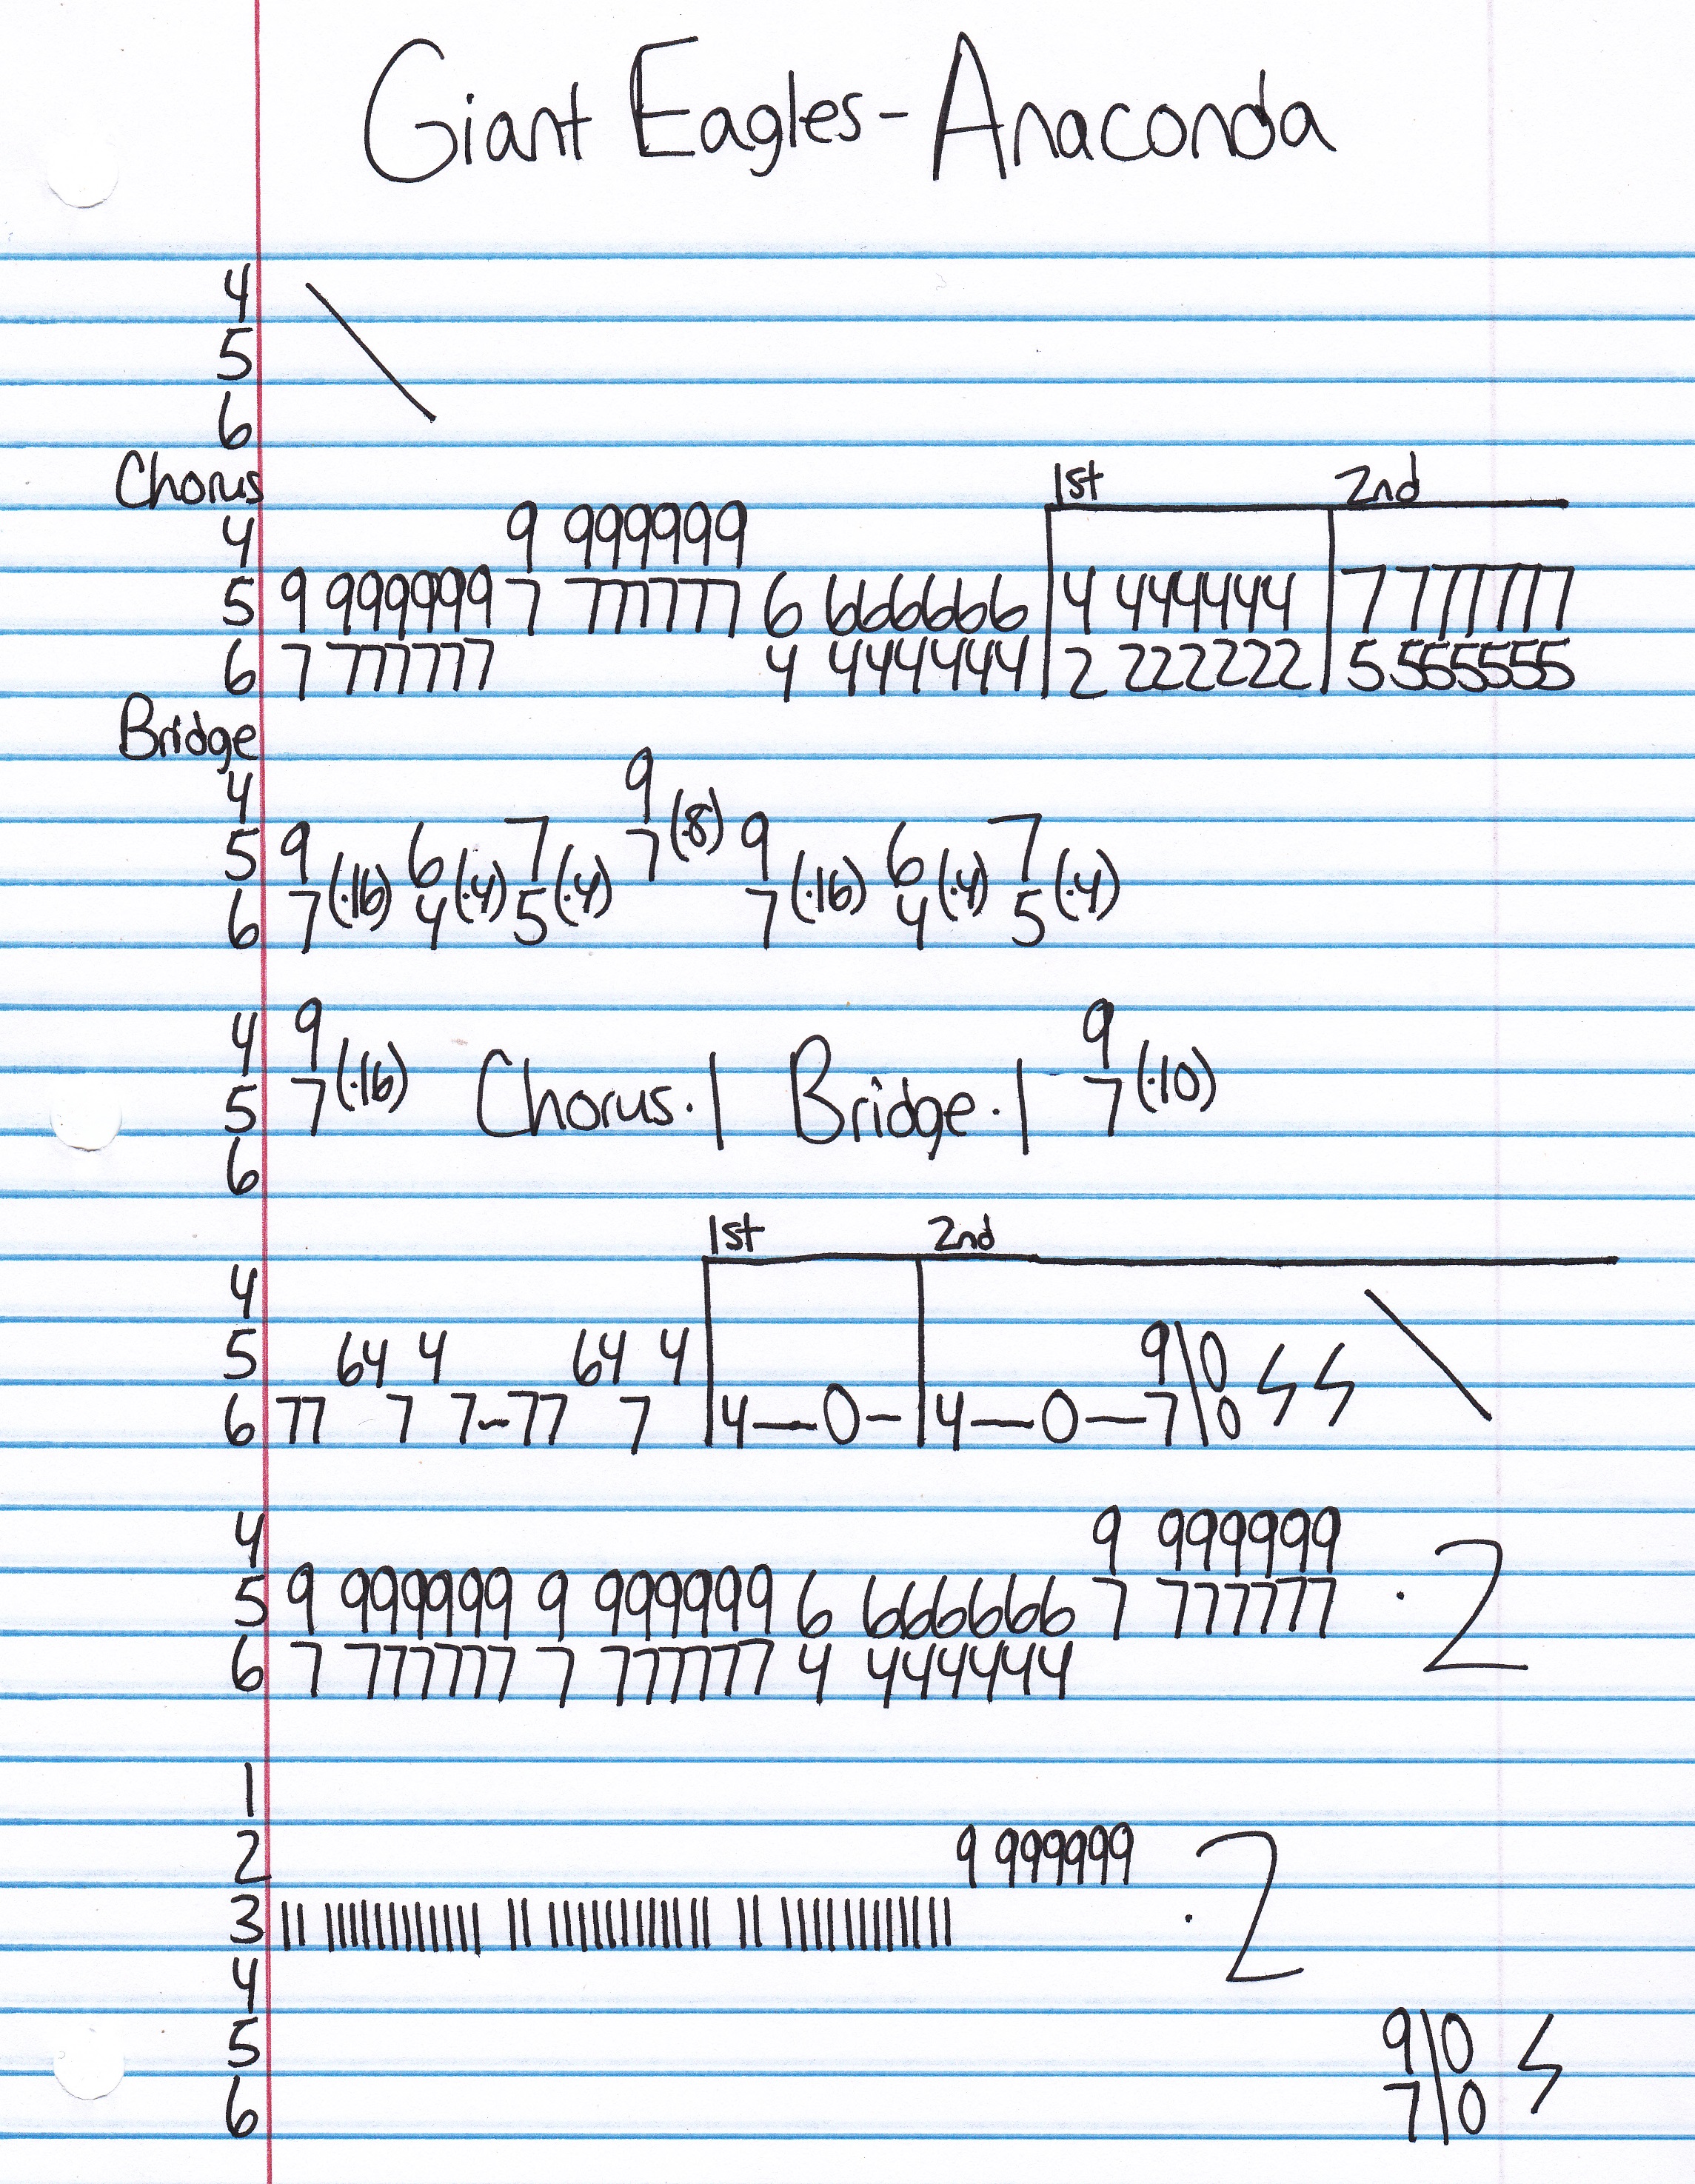 Giant Eagles - Anaconda
4 \
5
6
Chorus 1st 2nd
4 9 999999
5 9 999999 7 777777 6 666666 4 444444 7 777777
6 7 777777 4 444444 2 222222 5 555555
Bridge
4 9
5 9 6 7 7(·8) 9 6 7
6 7(·16) 4(·4) 5(·4) 7(·16) 4(·4) 5(·4)
4 9 9
5 7(·16) Chorus·1 Bridge·1 7(·10)
6
1st 2nd
4
5 64 4 64 4 9\0
6 77 7 7-77 7 4—0- 4—0—7\0
4 9 999999
5 9 999999 9 999999 6 666666 7 777777 ·2
6 7 777777 7 777777 4 444444
1
2 9 999999 ·2
3 11 11111111111 11 111111111111 11 111111111111
4
5 9\0
6 7\0